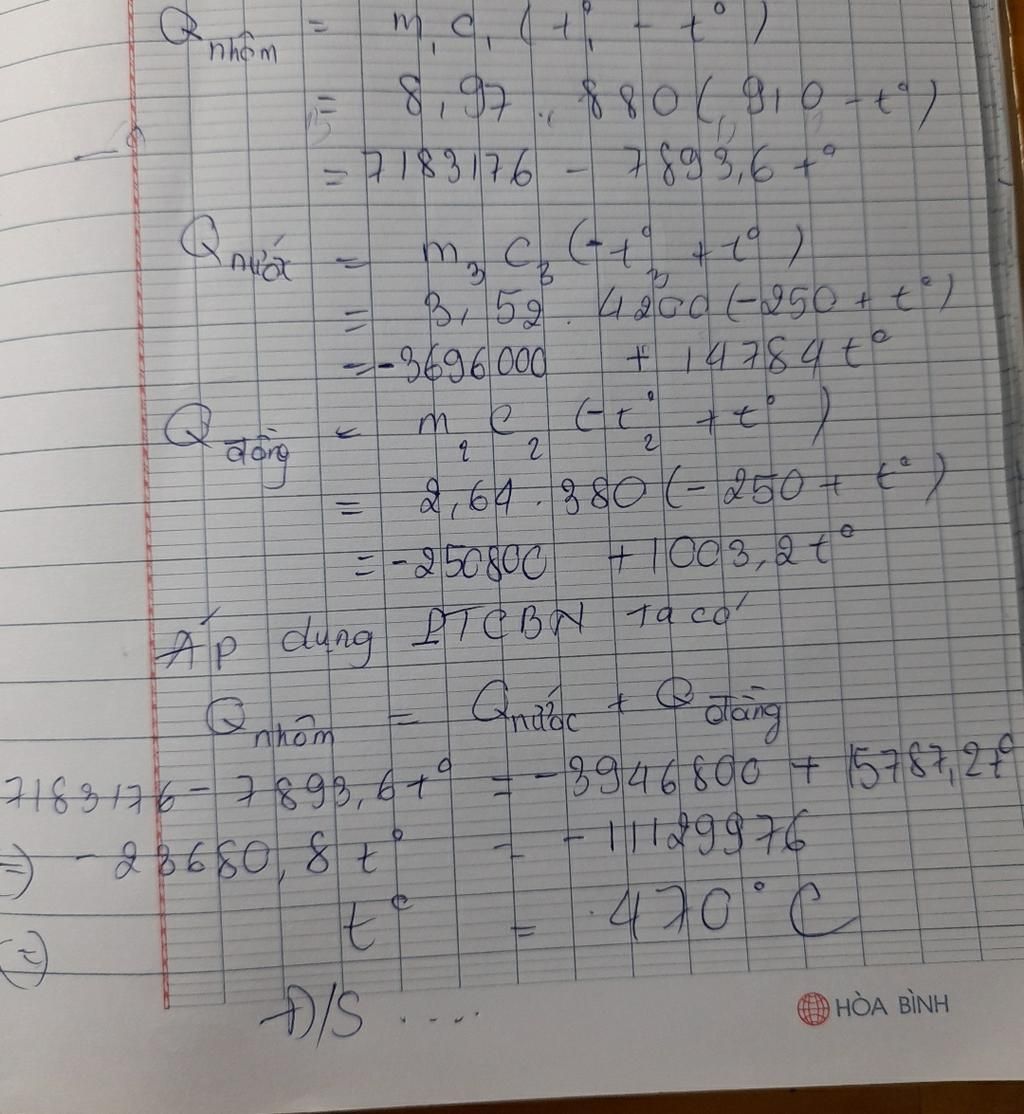 Q nhôm = m₁ c₁ ( t°₁ - t° )
= 8,97 . 880 ( 910 - t° )
= 7183176 - 7893,6 t°
Q nước = m₃ c₃ (-t°₃ + t° )
= 3,52 . 4200 (-250 + t° )
= -3696000 + 14784 t°
Q đồng = m₂ c₂ (-t°₂ + t° )
= 2,64 . 380 (-250 + t° )
= -250800 + 1003,2 t°
Áp dụng PTCBN ta có
Q nhôm = Q nước + Q đồng
7183176 - 7893,6 t° = -3946800 + 15787,2 t°
=) -23680,8 t° = -11129976
(=) t° = 470° C
Đ/S ....
HÒA BÌNH